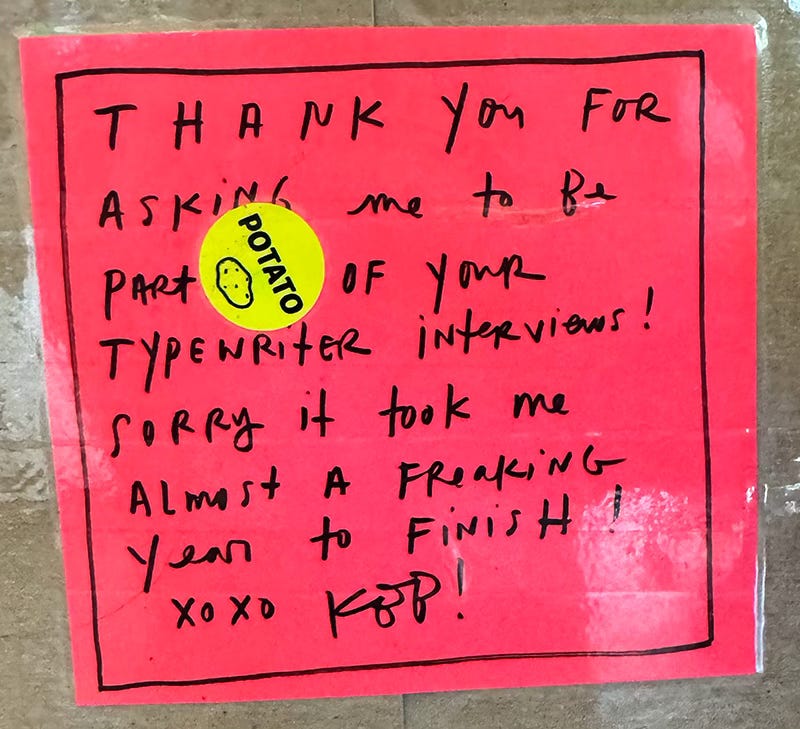 THANK YOU FOR
ASKING me to Be
PART OF YOUR
POTATO
TYPEWRITER interviews!
SORRY it took me
ALmost A FReakiNG
Year to FiNisH!
XOXO